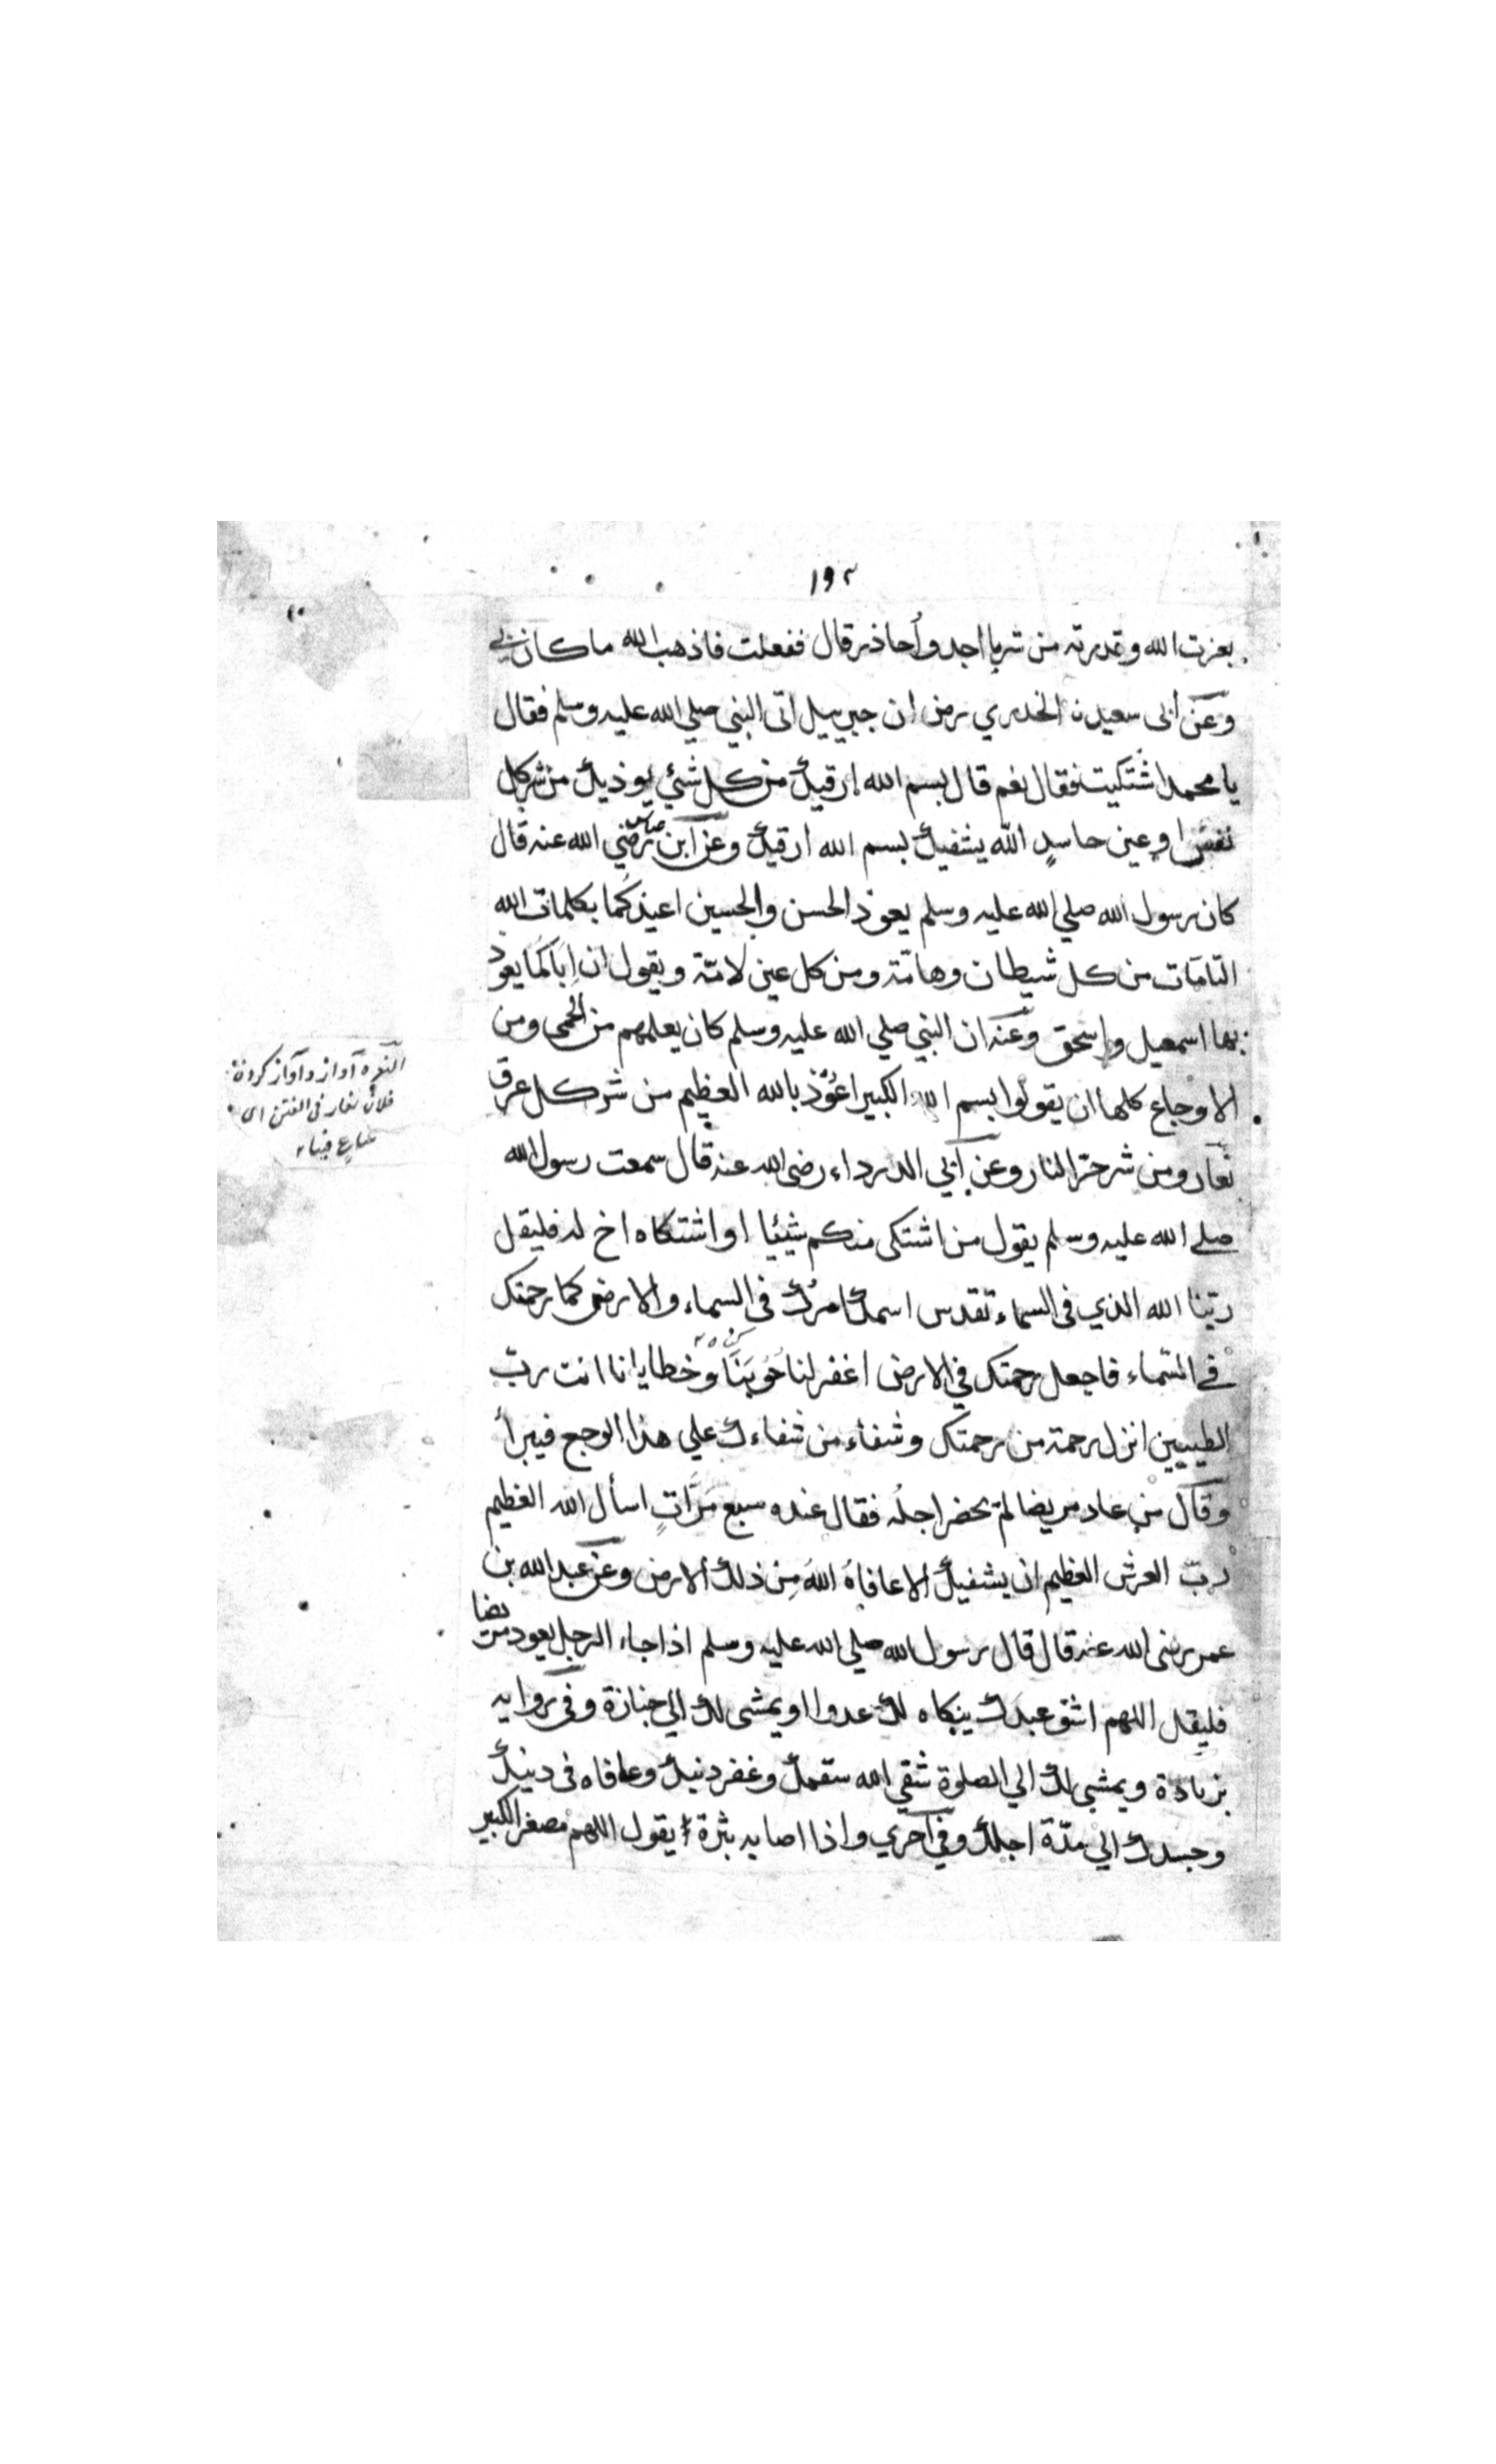 ١٩٢
بعزت الله وقدرته من شر ما اجد واُحاذر قال ففعلت فاذهب الله ما كان بي
وعن ابى سعيدن الخدري رض ان جبرييل اتى النبي صلي الله عليه وسلم فقال
يا محمد اشتكيت فقال نعم قال بسم الله ارقيك من كل شئي يوذيك من شر كل
نفس او عين حاسدٍ الله يشفيك بسم الله ارقيك وعن ابن عباس رضي الله عنه قال
كان رسول الله صلي الله عليه وسلم يعوذ الحسن والحسين اعيذكما بكلمات الله
التامّات من كل شيطان وهامّة ومن كل عين لامّة ويقول ان اباكما يعوذ
بها اسمعيل واسحق وعنه ان النبي صلي الله عليه وسلم كان يعلمهم من الحمى ومن
الاوجاع كلها ان يقولوا بسم الله الكبير اعوذ بالله العظيم من شر كل عرق
نعّار ومن شر حر النار وعن ابي الدرداء رضى الله عنه قال سمعت رسول الله
صلى الله عليه وسلم يقول من اشتكى منكم شيئا او اشتكاه اخ له فليقل
ربّنا الله الذي في السماء تقدس اسمك امرك فى السماء والارض كما رحمتك
في السّماء فاجعل رحمتك في الارض اغفر لنا حُوبَنَا وخطايانا انت ربّ
الطيبين انزل رحمة من رحمتك وشفاء من شفاءك علي هذا الوجع فيبرأ
وقال من عاد مريضا لم يحضر اجلُه فقال عنده سبع مرّاتٍ اسأل الله العظيم
ربّ العرش العظيم ان يشفيك الا عافاهُ اللهُ مِن ذلك الارض وعن عبد الله بن
عمر رضى الله عنه قال قال رسول الله صلي الله عليه وسلم اذا جاء الرجل يعود مريضا
فليقل اللهم اشف عبدك ينكاه لك عدوا او يمشى لك الي جنازة وفى رواية
بزيادة ويمشي لك الي الصلوة شفي الله سقمك وغفر ذنبك وعافاه فى دينك
وجسدك الي مدّة اجلك وفي اخري واذا اصابه بثرة يقول اللهم مصغر الكبير
النعره آواز و آواز كردن
فلان نعار فى الفتن اى
فيها